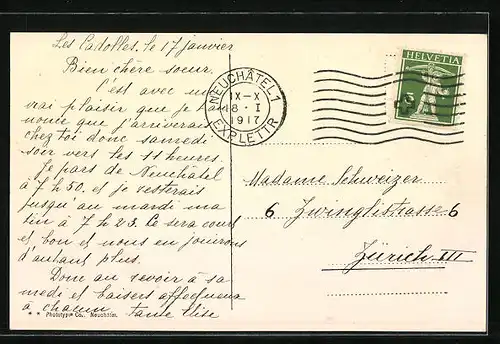 Les Cadolles, le 17 janvier
Bien chère soeur,
C'est avec un
vrai plaisir que je
que j'arriverais
chez toi donc samedi
soir vers les 11 heures.
Je pars de Neuchâtel
à 7 h 50, et je resterais
jusqu'au mardi ma
tin à 7 h 23. Ce sera court
et bon et nous en jouirons
d'autant plus.
Donc au revoir à sa
medi et baisers affectueux
à chacun.
** Phototypie Co., Neuchâtel.
NEUCHÂTEL 1
IX–X
18. I
1917
EXP. LETTR.
HELVETIA
5
Madame Schweizer
6 Zwinglistrasse 6
Zürich III